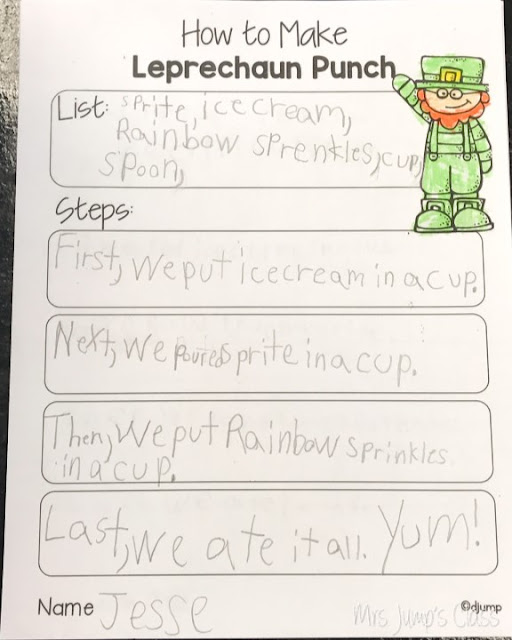 How to Make
Leprechaun Punch
List: sprite, ice cream,
Rainbow sprenkles, cup,
spoon,
Steps:
First, We put icecream in a cup.
Next, We poured sprite in a cup.
Then, We put Rainbow sprinkles
in a cup.
Last, we ate it all. Yum!
Name Jesse
©djump
Mrs Jump's Class